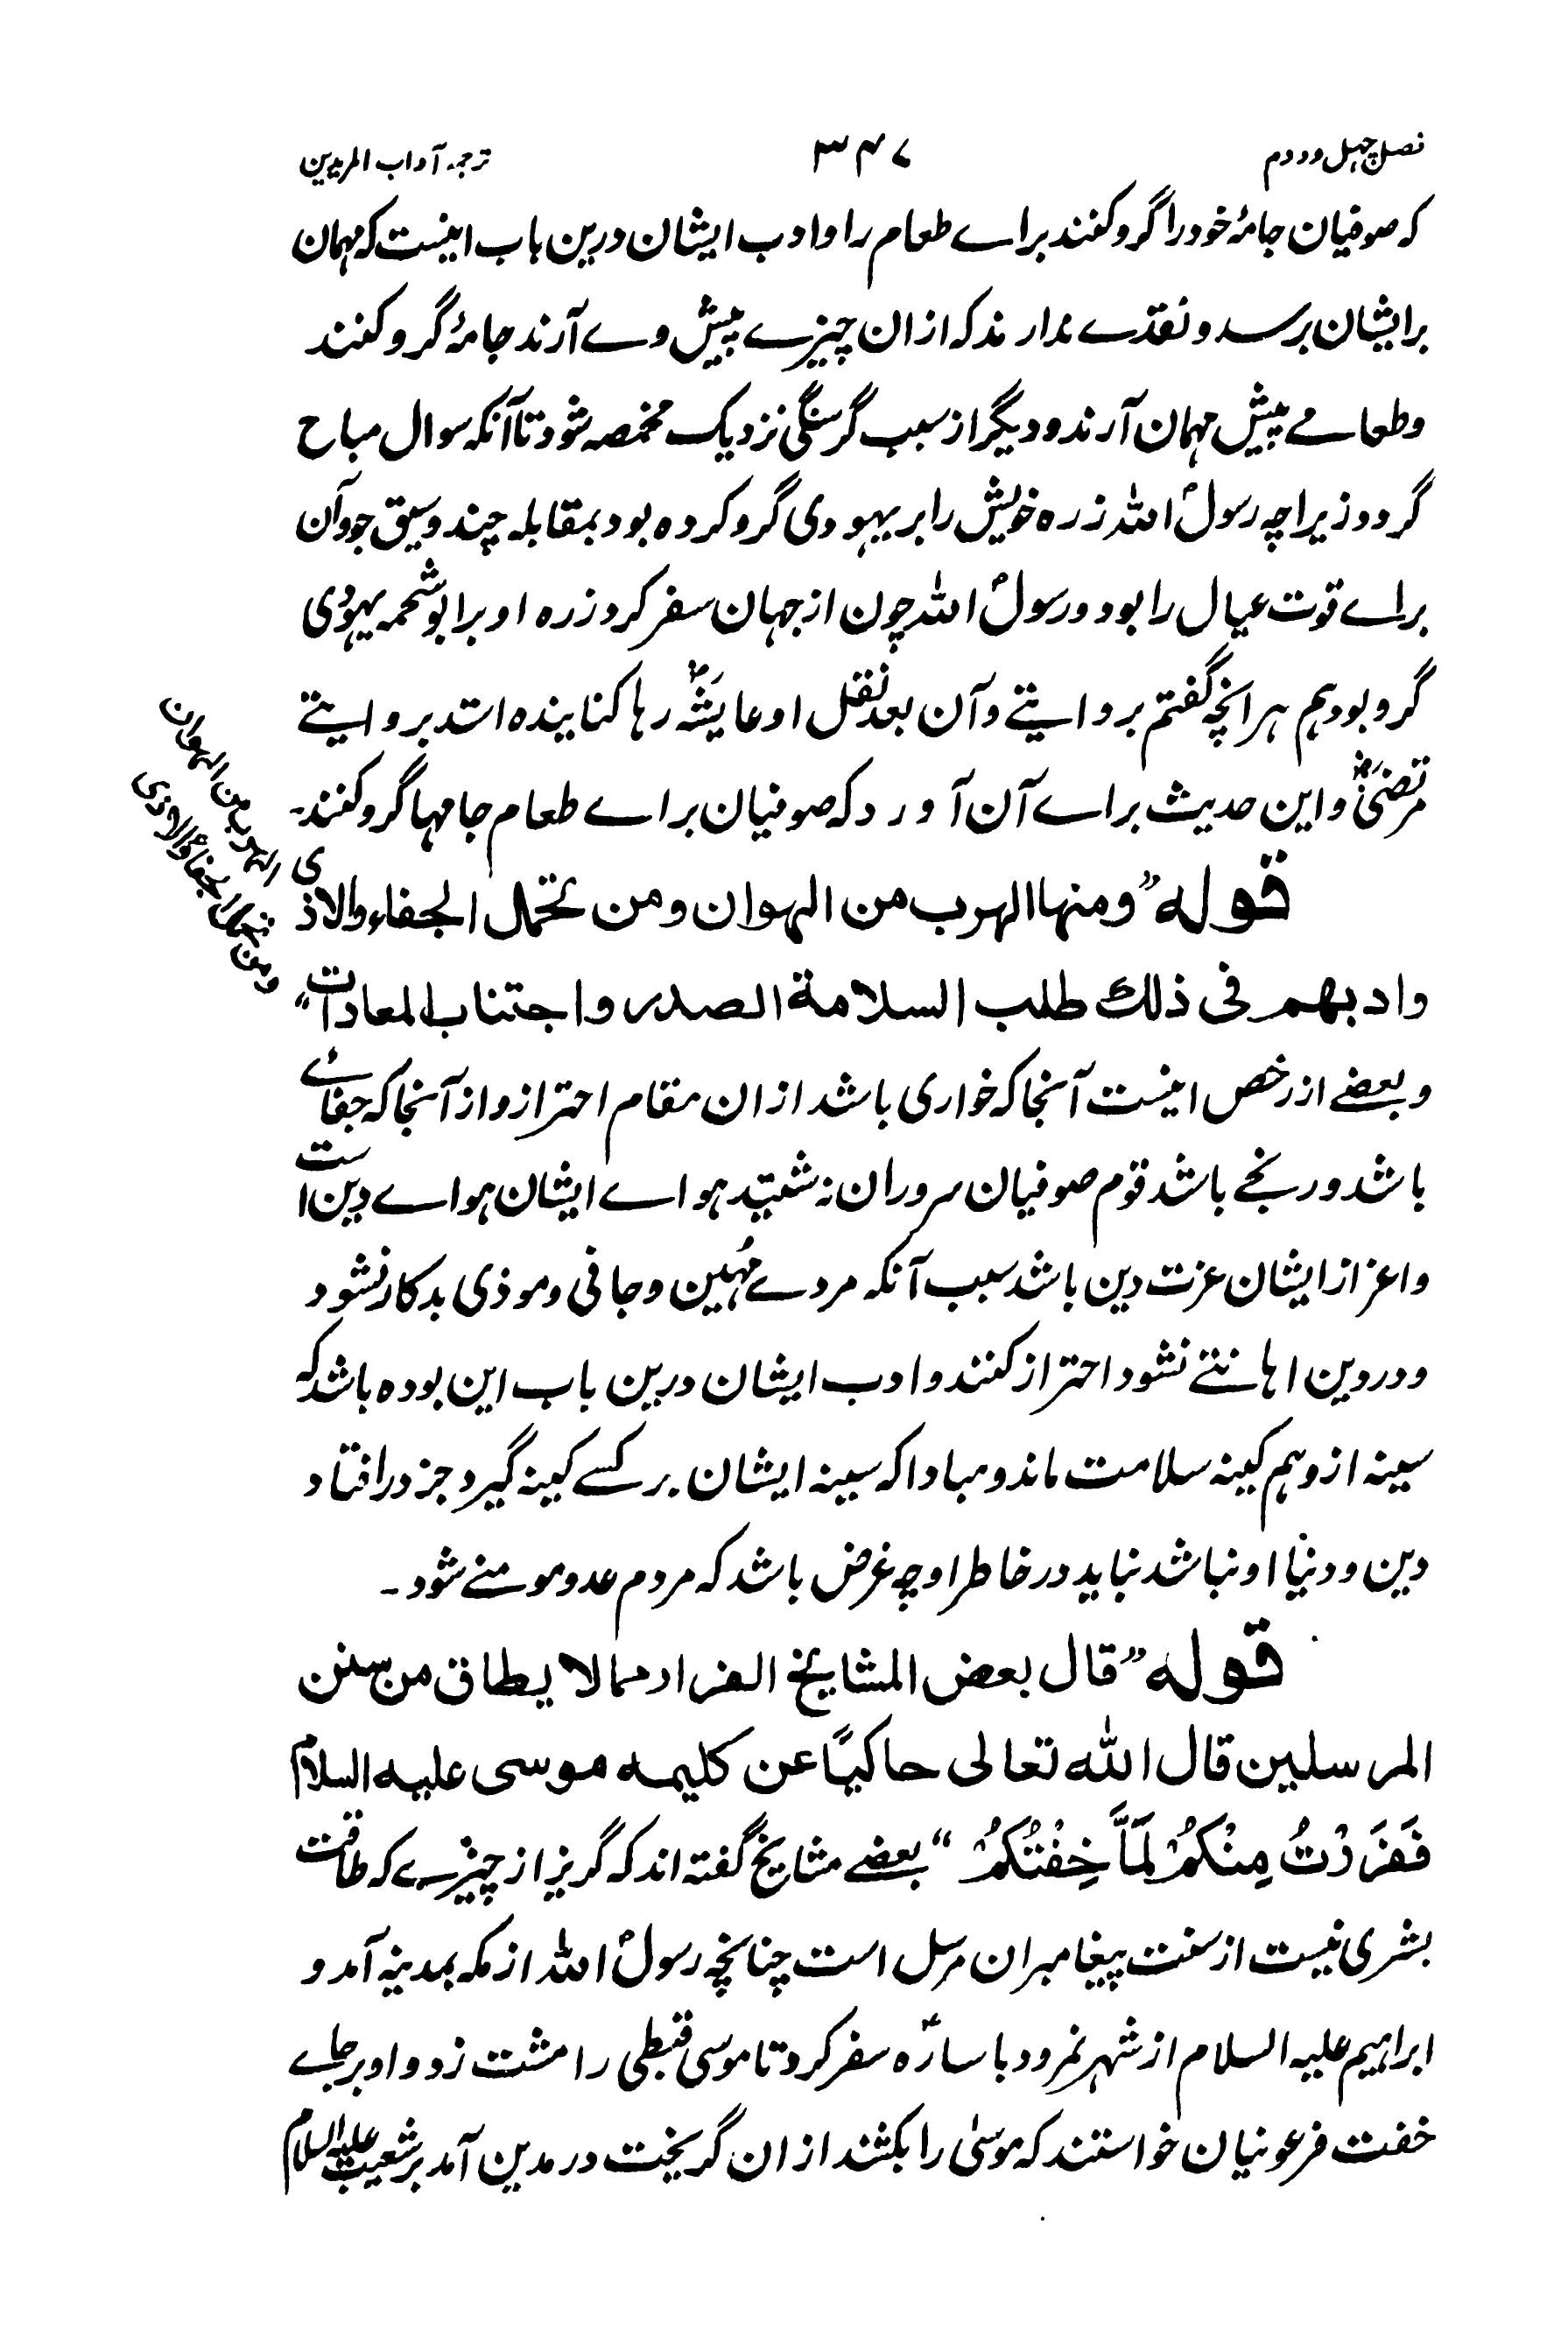 فصل چہل ودوم
۳۴۷
ترجمہ آداب المریدین
کہ صوفیان جامۂ خود را گرو کنند براے طعام را وادب ایشان درین باب اینست کہ مہمان
بر ایشان برسد و نقدے ندارند کہ ازان چیزے پیش وے آرند جامۂ گرو کنند
وطعامے پیش مہمان آرند ودیگر از سبب گرسنگی نزدیک مخمصہ شود تا آنکہ سوال مباح
گردد زیراچہ رسولؐ اللہ زرہ خویش را بر یہودی گرو کردہ بود بمقابلہ چند وسیق جو وآن
براے قوت عیال را بود ورسولؐ اللہ چون از جہان سفر کرد زرہ او بر ابوشحمہ یہودی
گرو بود ہم ہرانچہ گفتم بر وایتے وآن بعد نقل او عایشہؓ رہا کنایندہ استد بر وایتے
مرتضیٰؓ واین حدیث براے آن آورد کہ صوفیان براے طعام جامہا گرو کنند۔
قوله ”ومنها الهرب من الهوان ومن تحمل الجفاء والاذى
وادبهم فى ذلك طلب السلامة الصدر واجتناب المعادات“
وبعضے از رخص اینست آنجا کہ خواری باشد ازان مقام احتراز واز آنجا کہ جفائے
باشد ورنجے باشد قوم صوفیان سروران نہ شیتد ہواے ایشان ہواے دین است
واعزاز ایشان عزت دین باشد سبب آنکہ مردے مُہین وجافی وموذی بدکار نشود
ودر دین اہانتے نشود احتراز کنند وادب ایشان درین باب این بودہ باشد کہ
سینہ از وہم کینہ سلامت ماند ومبادا کہ سینہ ایشان بر کسے کینہ گیرد جز در افتاد
دین ودنیا او نباشد نباید در خاطر او چہ غرض باشد کہ مردم عدو مومنے شود۔
قوله ”قال بعض المشايخ الفرار مما لا يطاق من سنن
المرسلين قال الله تعالى حاكيًا عن كليمه موسى عليه السلام
فَفَرَرْتُ مِنْكُمْ لَمَّا خِفْتُكُمْ“ بعضے مشایخ گفتہ اند کہ گریز از چیزے کہ طاقت
بشری نیست از سنت پیغامبران مرسل است چنانچہ رسولؐ اللہ از مکہ بمدینہ آمد و
ابراہیم علیہ السلام از شہر نمرود با سارہؑ سفر کرد تا موسی قبطی را مشت زد واو بر جاے
خفت فرعونیان خواستند کہ موسیٰ را بکشند ازان گریخت در مدین آمد بر شعیب علیہ السلام
الهرب من الهوان
ومن تحمل الجفاء والاذى